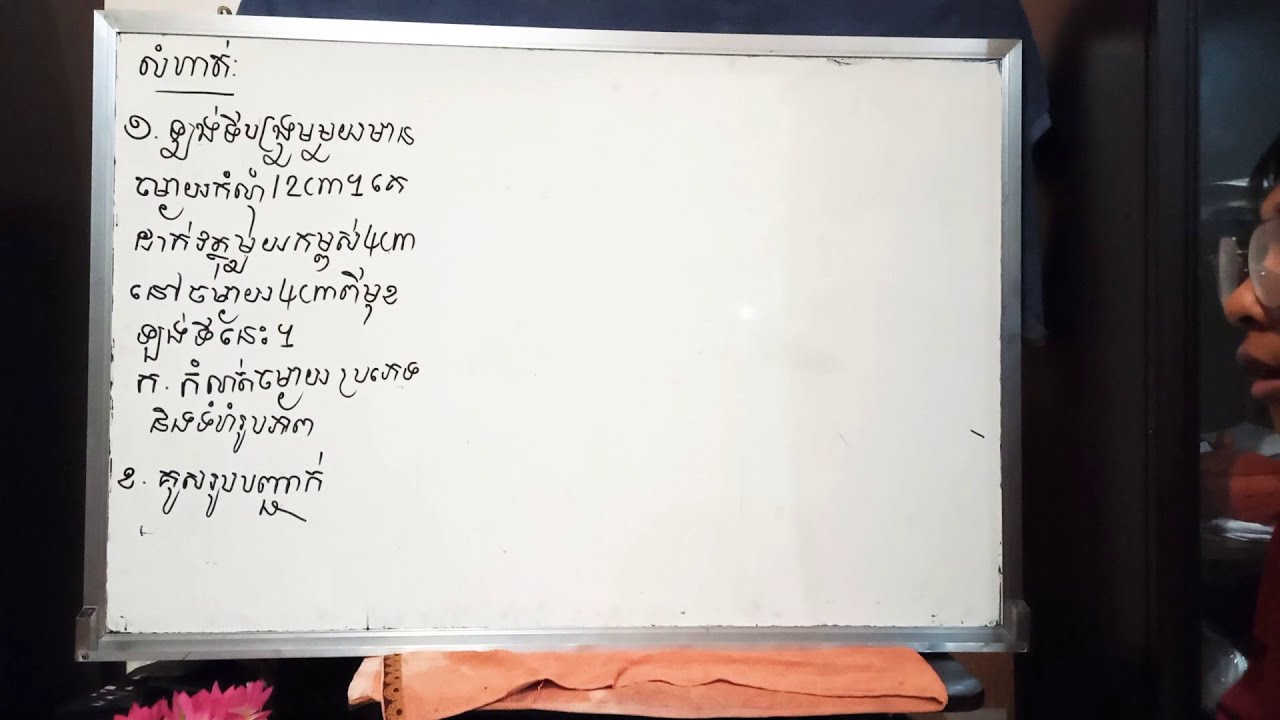 លំហាត់:
១. ឡង់ទីបង្រួមមួយមាន
ចម្ងាយកំណុំ 12cm។ គេ
ដាក់វត្ថុមួយកម្ពស់ 4cm
នៅចម្ងាយ 4cm ពីមុខ
ឡង់ទីនេះ។
ក. កំណត់ចម្ងាយ ប្រភេទ
និងទំហំរូបភាព
ខ. គូសរូបបញ្ជាក់